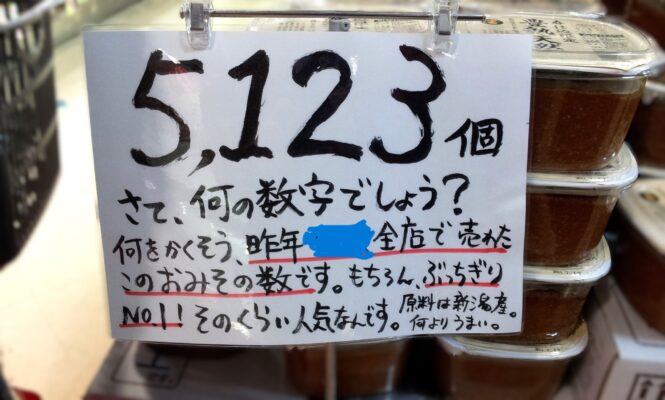 5,123個
さて、何の数字でしょう?
何をかくそう、昨年 全店で売れた
このおみその数です。もちろん、ぶっちぎり
NO1!そのくらい人気なんです。
原料は新潟産。
何よりうまい。